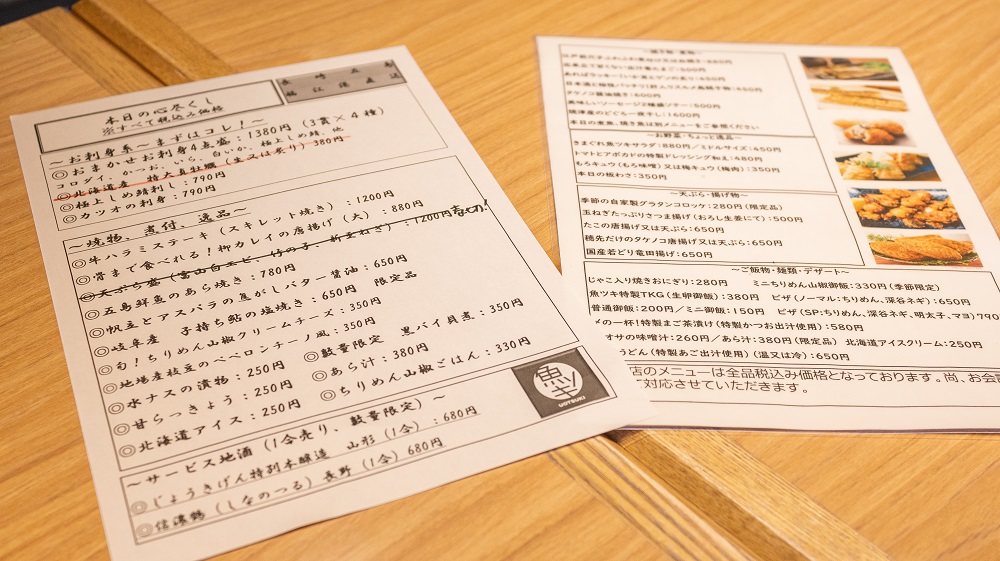 本日の心尽くし
※すべて税込み価格
長崎五島
福江港直送
～お刺身系～まずはコレ！～
◎おまかせお刺身4点盛：1380円（3貫×4種）
コロダイ、かつお、いら、白いか、極上しめ鯖、他
◎北海道産 特大真牡蠣（生又は炙り）380円
◎極上しめ鯖刺し：790円
◎カツオの刺身：790円
～焼物、煮付、逸品～
◎牛ハラミステーキ（スキレット焼き）：1200円
◎骨まで食べれる！柳カレイの唐揚げ（大）：880円
◎天ぷら盛（富山白エビ、竹の子、新玉ねぎ）：1200円
◎五島鮮魚のあら焼き：780円
◎帆立とアスパラの焦がしバター醤油：650円
◎岐阜産 子持ち鮎の塩焼き：650円 限定品
◎旬！ちりめん山椒クリームチーズ：350円
◎地場産枝豆のペペロンチーノ風：350円
◎水ナスの漬物：250円
◎数量限定 黒バイ貝煮：350円
◎甘らっきょう：250円
◎あら汁：380円
◎北海道アイス：250円
◎ちりめん山椒ごはん：330円
魚ツキ
UOTSUKI
～サービス地酒（1合売り、数量限定）～
◎じょうきげん特別本醸造 山形（1合）：680円
◎信濃鶴（しなのつる）長野（1合）680円
日本酒と相性バッチリ！酢人リスルメ烏賊干物：450円
タケノコ醤油焼き：600円
美味しいソーセージ2種盛ツナー：500円
焼津産のどぐろ一夜干し：1600円
本日の煮魚、焼き魚は別メニューをご参照ください
～お野菜・ちょっと逸品～
きまぐれ魚ツキサラダ：880円／ミドルサイズ：450円
トマトとアボカドの特製ドレッシング和え：480円
もろキュウ（もろ味噌）又は梅キュウ（梅肉）：350円
本日の板わさ：350円
～天ぷら・揚げ物～
季節の自家製グラタンコロッケ：280円（限定品）
玉ねぎたっぷりさつま揚げ（おろし生姜にて）：500円
たこの唐揚げ又は天ぷら：650円
穂先だけのタケノコ唐揚げ又は天ぷら：650円
国産若どり竜田揚げ：650円
～ご飯物・麺類・デザート～
じゃこ入り焼きおにぎり：280円 ミニちりめん山椒御飯：330円（季節限定）
魚ツキ特製TKG（生卵御飯）：380円 ピザ（ノーマル：ちりめん、深谷ネギ）：650円
普通御飯：200円／ミニ御飯：150円 ピザ（SP：ちりめん、深谷ネギ、明太子、マヨ）790
〆の一杯！特製まご茶漬け（特製かつお出汁使用）：580円
オサの味噌汁：260円／あら汁：380円（限定品） 北海道アイスクリーム：250円
うどん（特製あご出汁使用）（温又は冷）：650円
店のメニューは全品税込み価格となっております。尚、お会
ご対応させていただきます。